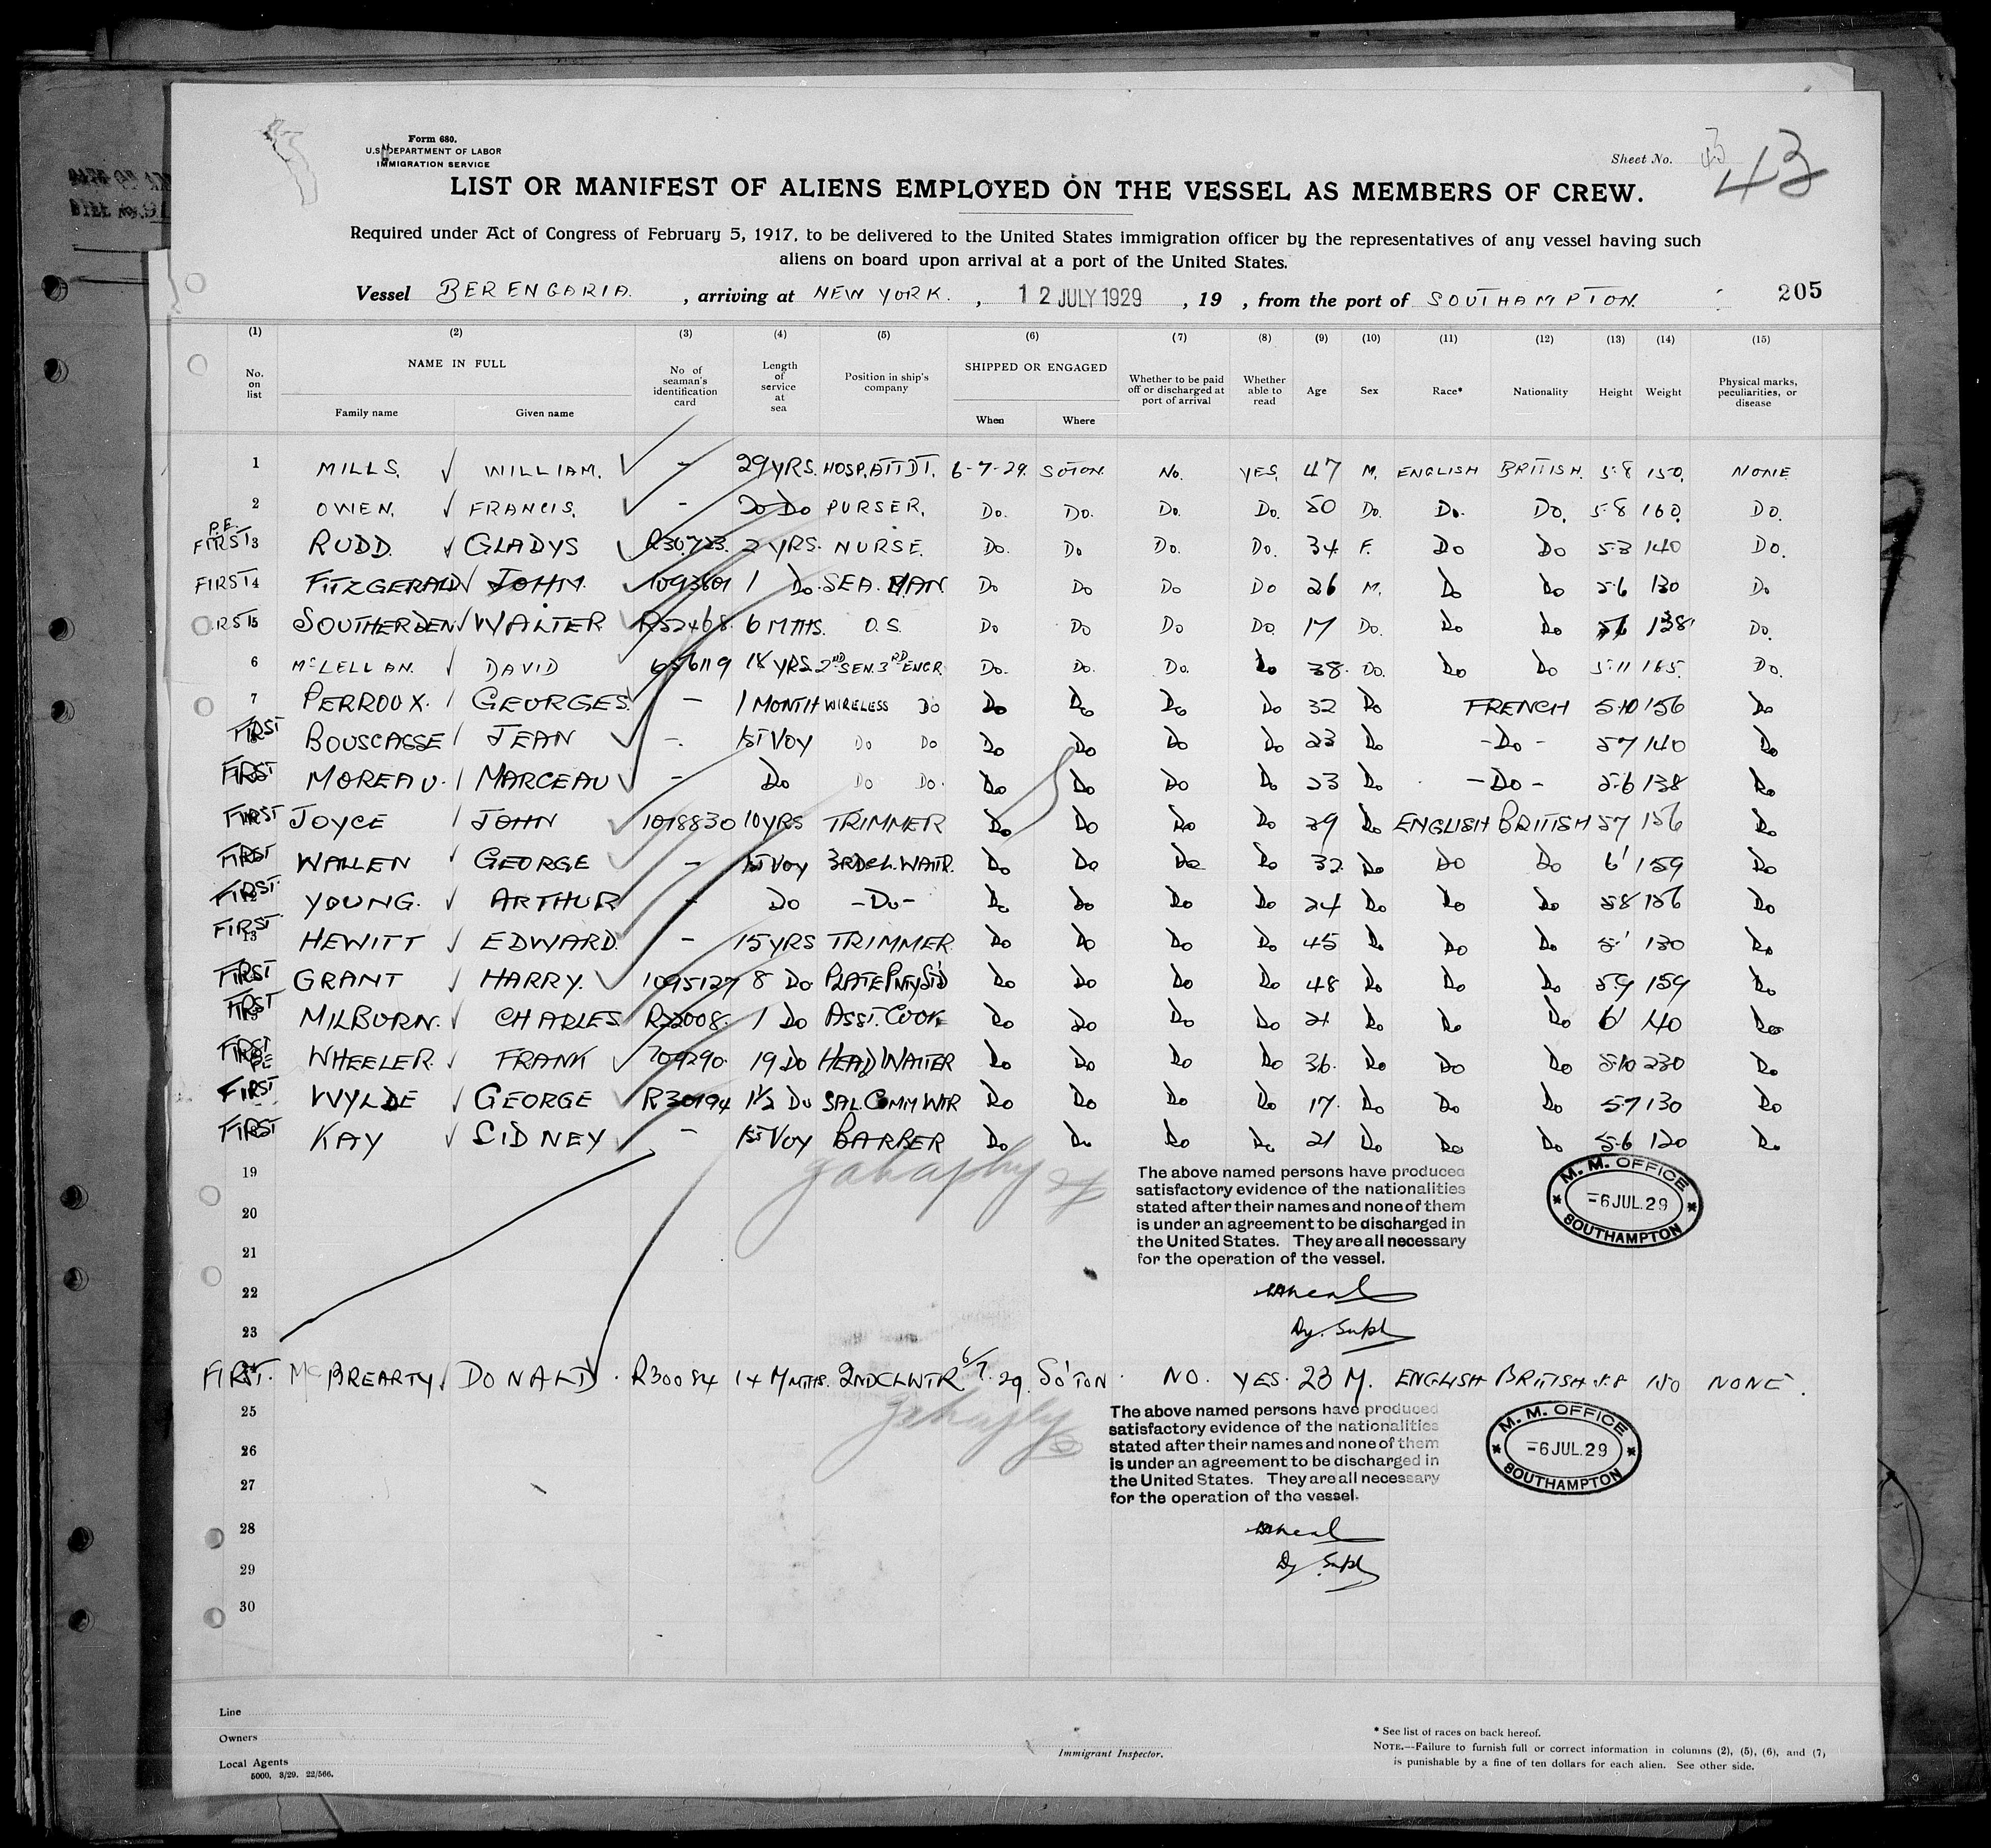 Form 680.
U.S. DEPARTMENT OF LABOR
IMMIGRATION SERVICE
Sheet No. 43
LIST OR MANIFEST OF ALIENS EMPLOYED ON THE VESSEL AS MEMBERS OF CREW.
Required under Act of Congress of February 5, 1917, to be delivered to the United States immigration officer by the representatives of any vessel having such
aliens on board upon arrival at a port of the United States.
Vessel BERENGARIA. , arriving at NEW YORK. , 12 JULY 1929 , 19 , from the port of SOUTHAMPTON. 205
(1) (2) (3) (4) (5) (6) (7) (8) (9) (10) (11) (12) (13) (14) (15)
No. on list NAME IN FULL Family name Given name No of seaman's identification card Length of service at sea Position in ship's company SHIPPED OR ENGAGED When Where Whether to be paid off or discharged at port of arrival Whether able to read Age Sex Race* Nationality Height Weight Physical marks, peculiarities, or disease
1 MILLS. WILLIAM. - 29 YRS. HOSP. ATTDT. 6-7-29. SOTON. No. YES. 47 M. ENGLISH BRITISH. 5-8 150. NONE
2 OWEN. FRANCIS. - 20 Do PURSER. Do. Do. Do. Do. 50 Do. Do. Do. 5-8 160. Do.
P.E. FIRST 3 RUDD. GLADYS R30723. 2 YRS. NURSE. Do. Do Do. Do. 34 F. Do Do 5-3 140 Do.
FIRST 4 FITZGERALD JOHN. 1093601 1 Do. SEA.MAN Do Do Do Do 26 M. Do Do 5-6 130 Do
5 SOUTHERDEN WALTER R52468. 6 MTHS. O.S. Do Do Do Do. 17 Do. Do Do 138 Do.
6 McLELLAN. DAVID 656119 18 YRS 2ND SEN. 3RD ENGR. Do. Do. Do. Do 38. Do. Do Do 5-11 165. Do.
7 PERROUX. GEORGES. - 1 MONTH WIRELESS Do Do Do Do Do 32 Do FRENCH 5-10 156 Do
FIRST BOUSCASSE JEAN -. 1ST VOY Do Do Do Do Do Do 23 Do -Do- 5-7 140 Do
FIRST MOREAU. MARCEAU - Do Do Do. Do Do Do Do 23 Do -Do- 5-6 138 Do
FIRST JOYCE JOHN 1018830 10 YRS TRIMMER Do Do Do Do 29 Do ENGLISH BRITISH 5-7 156 Do
FIRST WALLEN GEORGE - 1ST VOY 3RD CL. WAITR. Do Do Do Do 32 Do Do Do 6' 159 Do
FIRST YOUNG. ARTHUR - Do -Do- Do Do Do Do 24 Do Do Do 5-8 156 Do
FIRST 13 HEWITT EDWARD. - 15 YRS TRIMMER Do Do Do Do 45 Do Do Do 5-' 130 Do
FIRST GRANT HARRY. 1095127 8 Do PLATE PNTYS'D Do Do Do Do 48 Do Do Do 5-9 159 Do
FIRST MILBURN. CHARLES R22008. 1 Do ASST. COOK Do Do Do Do 21 Do Do Do 6' 140 Do
FIRST PE WHEELER. FRANK 709290. 19 Do HEAD WAITER Do Do Do Do 36. Do Do Do 5-10 230 Do
FIRST WYLDE GEORGE R30194 1½ Do SAL. COMM WTR Do Do Do Do 17. Do Do Do 5-7 130 Do
FIRST KAY SIDNEY - 1ST VOY BARBER Do Do Do Do 21 Do Do Do 5-6 120 Do
19
20
21
22
23
The above named persons have produced
satisfactory evidence of the nationalities
stated after their names and none of them
is under an agreement to be discharged in
the United States. They are all necessary
for the operation of the vessel.
M. M. OFFICE
-6 JUL.29
SOUTHAMPTON
Dy. Supt
FIRST. McBREARTY DONALD. R30084 14 MNTHS. 2ND CL WTR 6/7.29. SO'TON. NO. YES. 23 M. ENGLISH BRITISH 5.8 150 NONE.
25
26
27
28
29
30
The above named persons have produced
satisfactory evidence of the nationalities
stated after their names and none of them
is under an agreement to be discharged in
the United States. They are all necessary
for the operation of the vessel.
M. M. OFFICE
-6 JUL.29
SOUTHAMPTON
Dy. Supt
Line
Owners
Local Agents
5000, 3/29. 22/566.
Immigrant Inspector.
* See list of races on back hereof.
NOTE.—Failure to furnish full or correct information in columns (2), (5), (6), and (7)
is punishable by a fine of ten dollars for each alien. See other side.